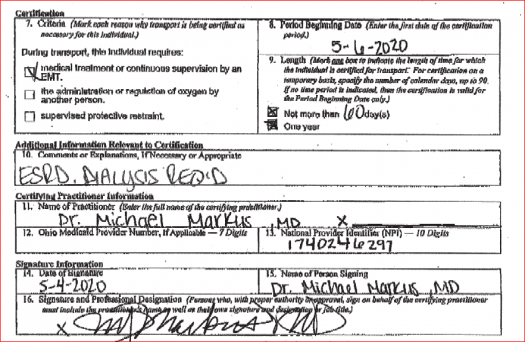 Certification
7. Criteria (Mark each reason why transport is being certified as
necessary for this individual.)
During transport, this individual requires:
medical treatment or continuous supervision by an
EMT.
the administration or regulation of oxygen by
another person.
supervised protective restraint.
8. Period Beginning Date (Enter the first date of the certification
period.)
5-6-2020
9. Length (Mark one box to indicate the length of time for which
the individual is certified for transport. For certification on a
temporary basis, specify the number of calendar days, up to 90.
If no time period is indicated, then the certification is valid for
the Period Beginning Date only.)
Not more than 60 day(s)
One year
Additional Information Relevant to Certification
10. Comments or Explanations, If Necessary or Appropriate
ESRD. DIALYSIS REQ'D
Certifying Practitioner Information
11. Name of Practitioner (Enter the full name of the certifying practitioner.)
Dr. Michael Markus, MD X
12. Ohio Medicaid Provider Number, if Applicable — 7 Digits
13. National Provider Identifier (NPI) — 10 Digits
1740246297
Signature Information
14. Date of Signature
5-4-2020
15. Name of Person Signing
Dr. Michael Markus, MD
16. Signature and Professional Designation (Persons who, with proper authority or approval, sign on behalf of the certifying practitioner
must include the practitioner's name as well as their own signature and designation or job title.)
X